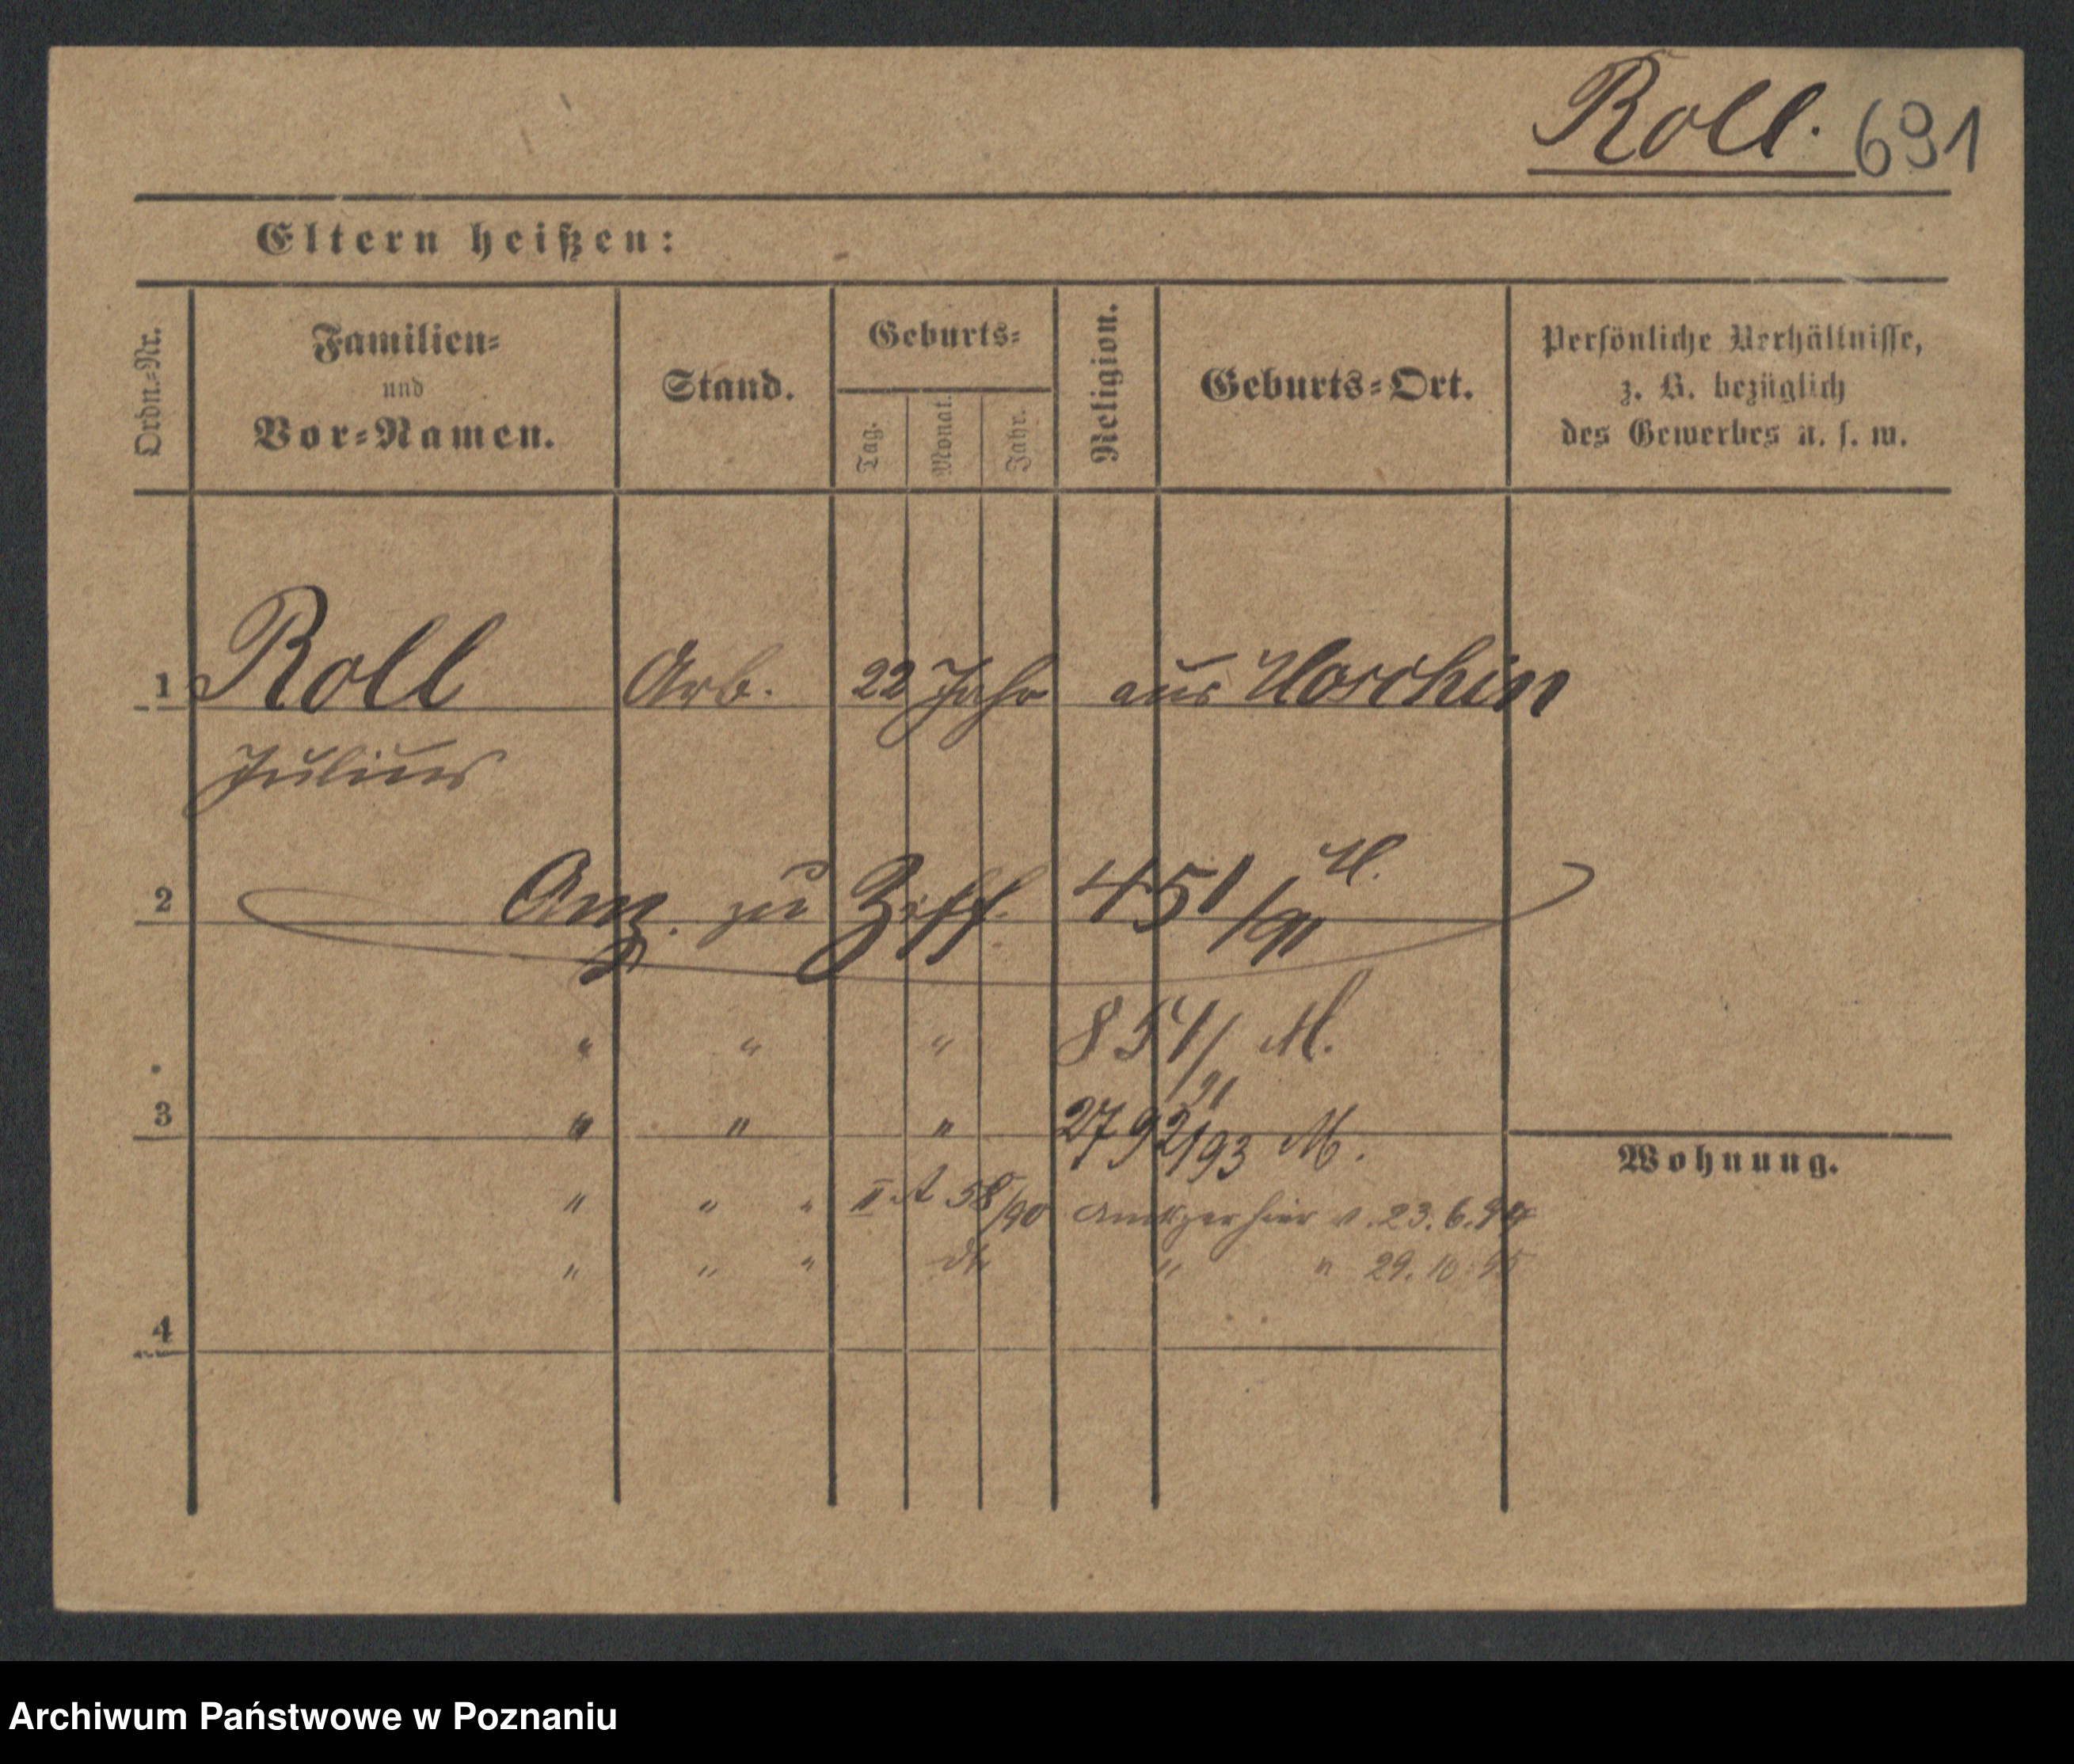 Roll. 691
Eltern heißen:
Ordn.-Nr.
Familien-
und
Vor-Namen.
Stand.
Geburts-
Tag.
Monat.
Jahr.
Religion.
Geburts-Ort.
Persönliche Verhältnisse,
z. B. bezüglich
des Gewerbes u. s. w.
1 Roll Arb. 22 Jahr aus
Julius
2 Anz. zu Ziff. 451/91
" " " 851/91 M.
3 " " " 2792/93 M.
Wohnung.
" " " II A 58/90 v. 23. 6. 94
" " " dto " " 29. 10. 95
4
Archiwum Państwowe w Poznaniu